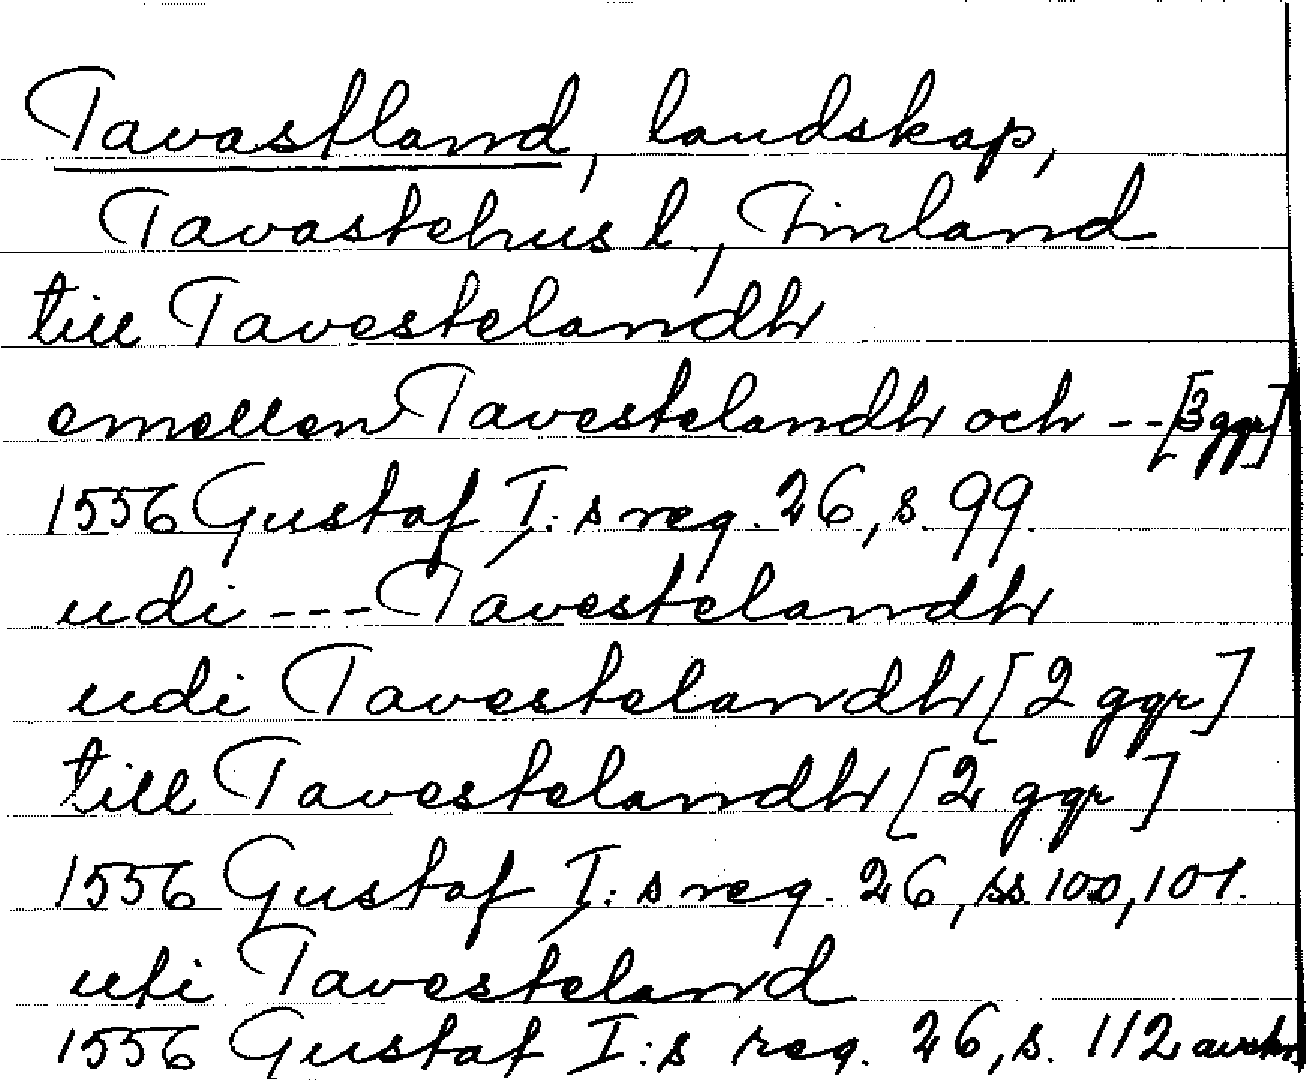 Tavastland, landskap,
Tavastehus l., Finland
till Tavestelandh
emellen Tavestelandh och -- [3 ggr]
1556 Gustaf I:s reg. 26, s. 99.
udi --- Tavestelandh
udi Tavestelandh [2 ggr]
till Tavestelandh [2 ggr]
1556 Gustaf I:s reg. 26, ss. 100, 101.
uti Tavesteland
1556 Gustaf I:s reg. 26, s. 112 avskr.